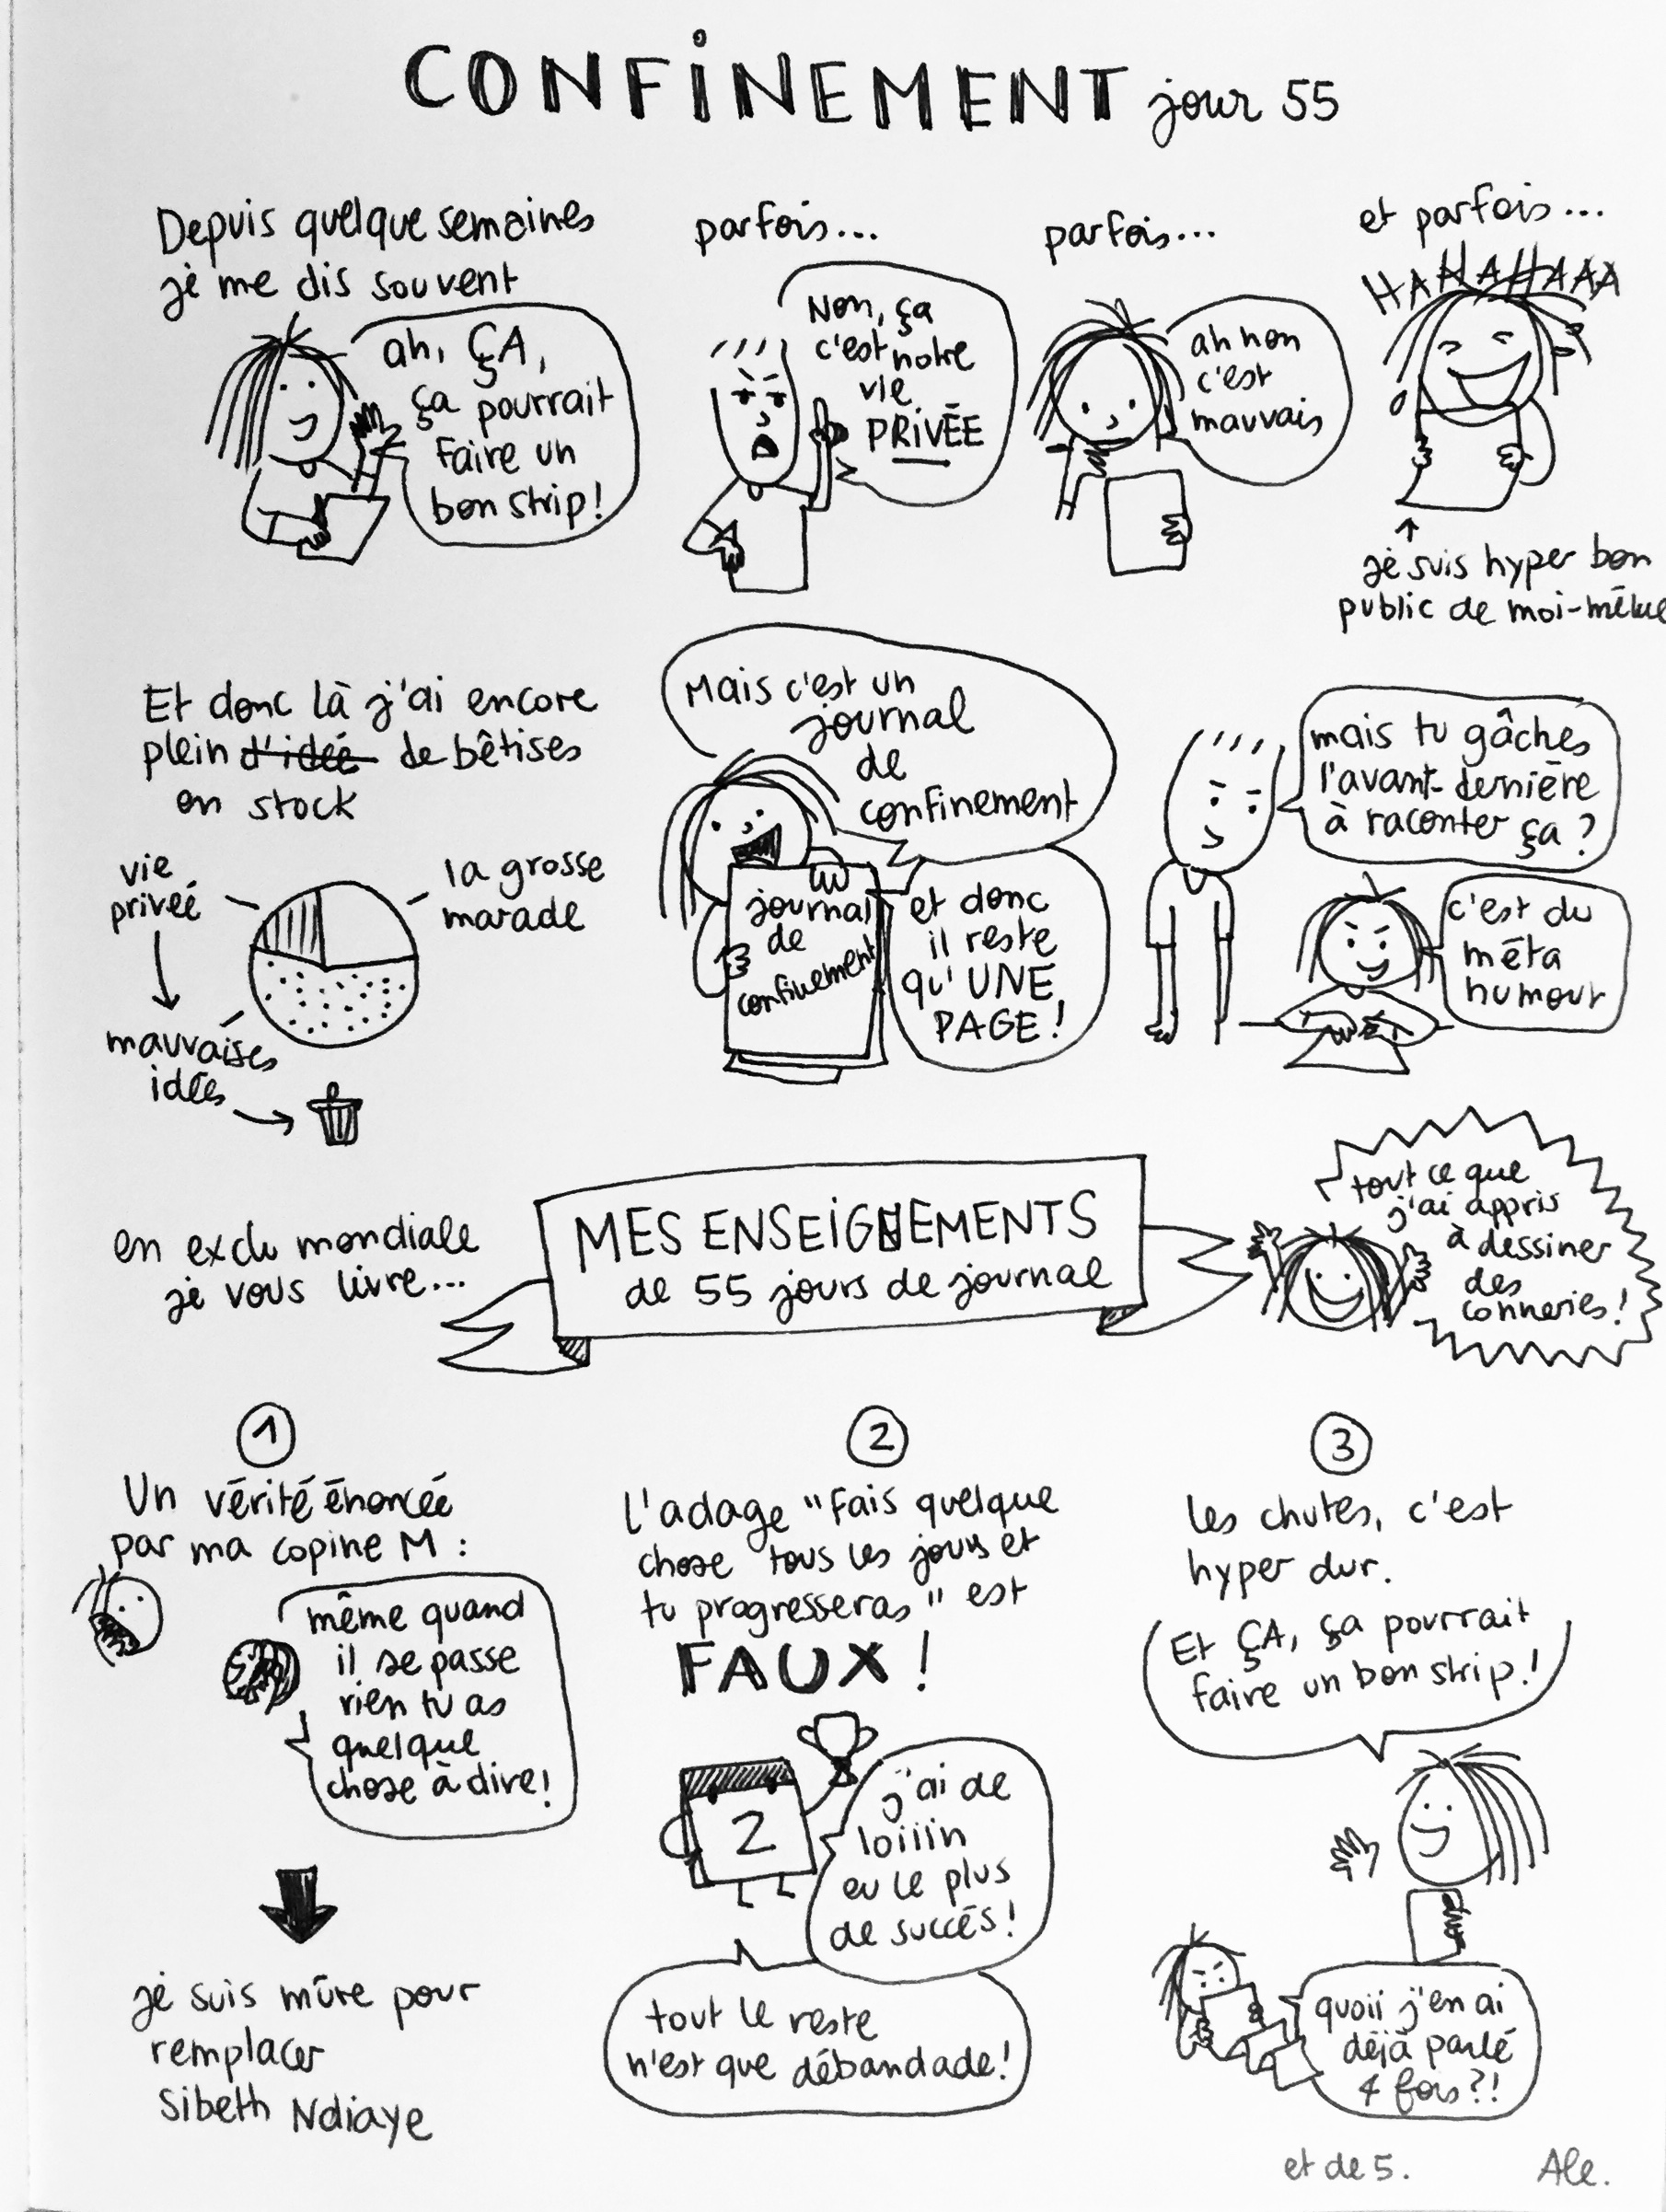 CONFiNEMENT jour 55
Depuis quelque semaines
je me dis souvent
ah, ÇA,
ça pourrait
faire un
bon strip!
parfois...
Non, ça
c'est notre
vie
PRiVÉE
parfois...
ah non
c'est
mauvais
et parfois...
HAHAHAAA
je suis hyper bon
public de moi-même
Et donc là j'ai encore
plein d'idéé de bêtises
en stock
vie
privéé
la grosse
marade
mauvaises
idées
Mais c'est un
journal
de
confinement
journal
de
confinement
et donc
il reste
qu'UNE
PAGE!
mais tu gâches
l'avant-dernière
à raconter ça?
c'est du
méta
humour
en exclu mondiale
je vous livre...
MES ENSEiGNEMENTS
de 55 jours de journal
tout ce que
j'ai appris
à dessiner
des
conneries!
1
Un vérité énoncéé
par ma copine M:
même quand
il se passe
rien tu as
quelque
chose à dire!
je suis mûre pour
remplacer
Sibeth Ndiaye
2
L'adage "Fais quelque
chose tous les jours et
tu progresseras" est
FAUX!
2
j'ai de
loiiiin
eu le plus
de succès!
tout le reste
n'est que débandade!
3
les chutes, c'est
hyper dur.
Et ÇA, ça pourrait
faire un bon strip!
quoii j'en ai
déjà parlé
4 fois?!
et de 5.
Ale.